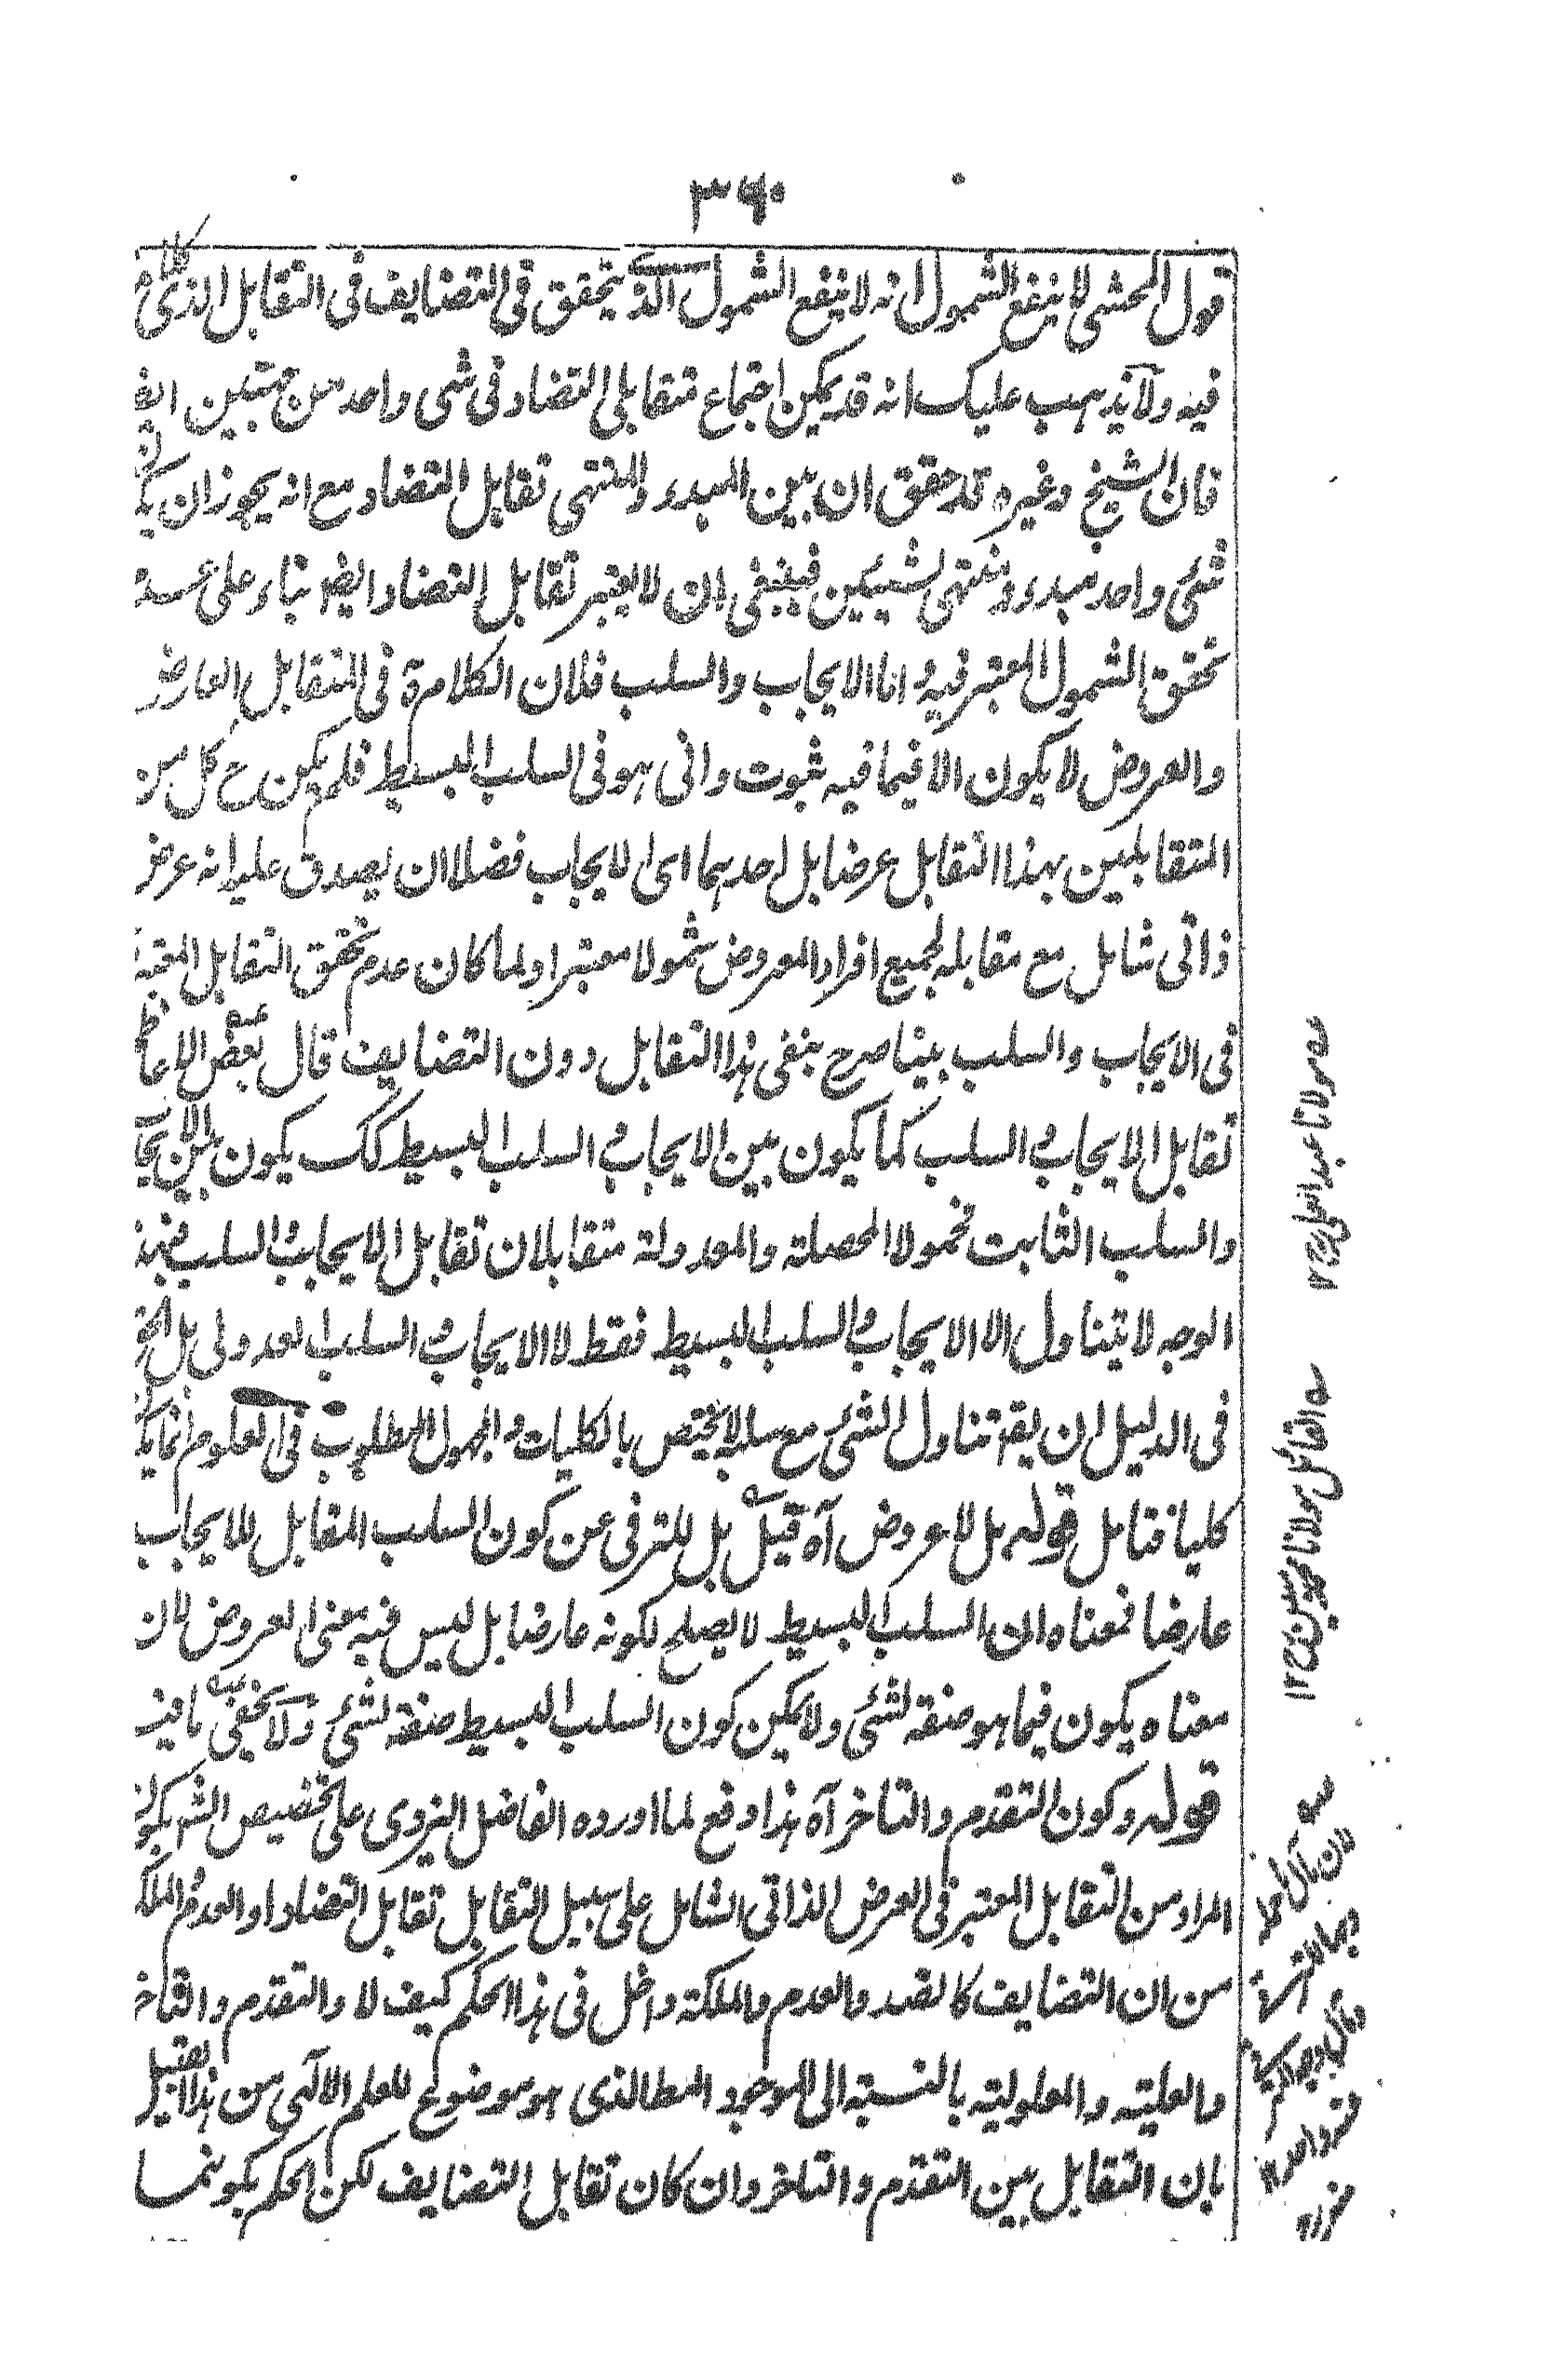 ٣٦٠
قول المحشی لا ینفع الشمول انه لا ینفع الشمول الذی یتحقق فی التضایف فی التقابل الذی کلامه
فیه ولا یذهب علیک انه قد یمکن اجتماع متقابلی التضاد فی شی واحد من جهتین ایض
فان الشیخ وغیره قد حقق ان بین المبدء والمنتهی تقابل التضاد مع انه یجوز ان یکون
شئ واحد مبدء ومنتهی لشیئین فینبغی ان لا یعتبر تقابل التضاد ایض بناء علی عدم
تحقق الشمول المعتبر فیه و اما الایجاب والسلب فلان الکلام فی المتقابل العارض
والعروض لا یکون الا فیما فیه ثبوت وانی هو فی السلب البسیط فلم یکن ح کل من
المتقابلین بهذا التقابل عرضا بل احدهما ای الایجاب فضلا ان یصدق علیه انه عرض
ذاتی شامل مع مقابله لجمیع افراد المعروض شمولا معتبرا ولما کان عدم تحقق التقابل المعتبر
فی الایجاب والسلب بینا صرح بنفی هذا التقابل دون التضایف قال بعض الاعاظم
تقابل الایجاب و السلب کما یکون بین الایجاب و السلب البسیط کک یکون بین الایجاب
والسلب الثابت فمحمولا المحصلة والمعدولة متقابلان تقابل الایجاب و السلب فهذا
الوجه لا یتناول الا الایجاب و السلب البسیط فقط لا الایجاب و السلب العدولی بل الحق
فی الدلیل ان یقه تناول الشئ مع سلبه لا یختص بالکلیات و المجهول المطلوب فی العلوم انما یکون
کلیا فتامل قوله بل لا عروض آه قیل بل للترقی عن کون السلب المقابل للایجاب
عارضا فمعناه ان السلب البسیط لا یصلح لکونه عارضا بل لیس فیه معنی العروض لان
معناه یکون فیما هو صفة لشئ ولا یمکن کون السلب البسیط صفة لشئ ولا یخفی ما فیه
قوله وکون التقدم والتاخر آه هذا دفع لما اورده الفاضل الیزدی علی تخصیص الش بکون
المراد من التقابل المعتبر فی العرض الذاتی الشامل علی سبیل التقابل تقابل التضاد او العدم و الملکة
من ان التضایف کالضد والعدم والملکة داخل فی هذا الحکم کیف لا والتقدم والتاخر
والعلیة والمعلولیة بالنسبة الی الموجود المط الذی هو موضوع للعلم الالهی من هذا القبیل
بان التقابل بین التقدم والتاخر وان کان تقابل التضایف لکن الحکم بکونهما
مولانا عبد العلی رح ١٢
القائل مولانا محمد مبین رح ١٢